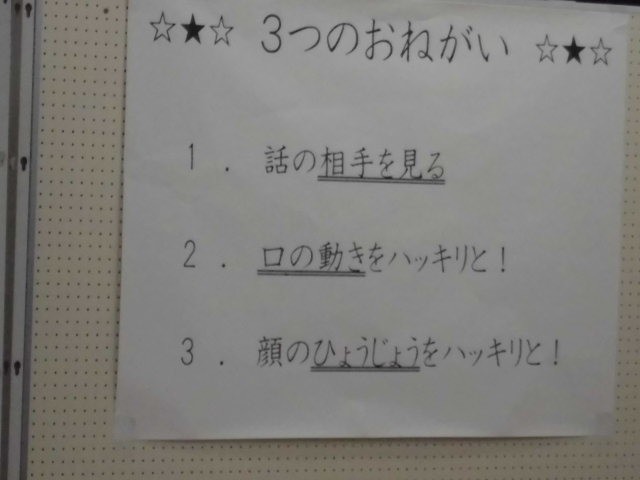 ☆★☆ 3つのおねがい ☆★☆
1. 話の相手を見る
2. 口の動きをハッキリと!
3. 顔のひょうじょうをハッキリと!